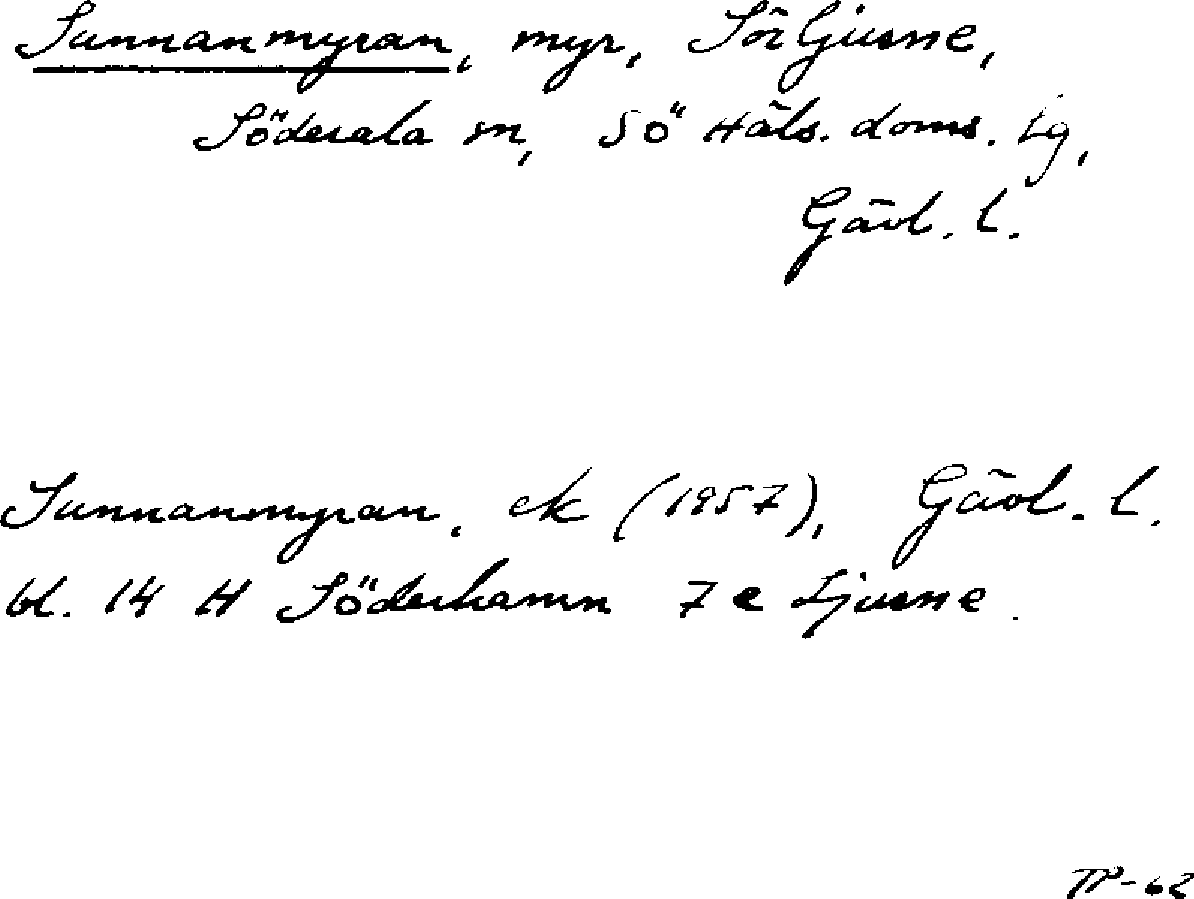 Sunnanmyran, myr, Sörljusne,
Söderala sn, Sö Häls. doms. lg,
Gävl. l.
Sunnanmyran, ek (1957), Gävl. l.
bl. 14 H Söderhamn 7e Ljusne.
TP-62